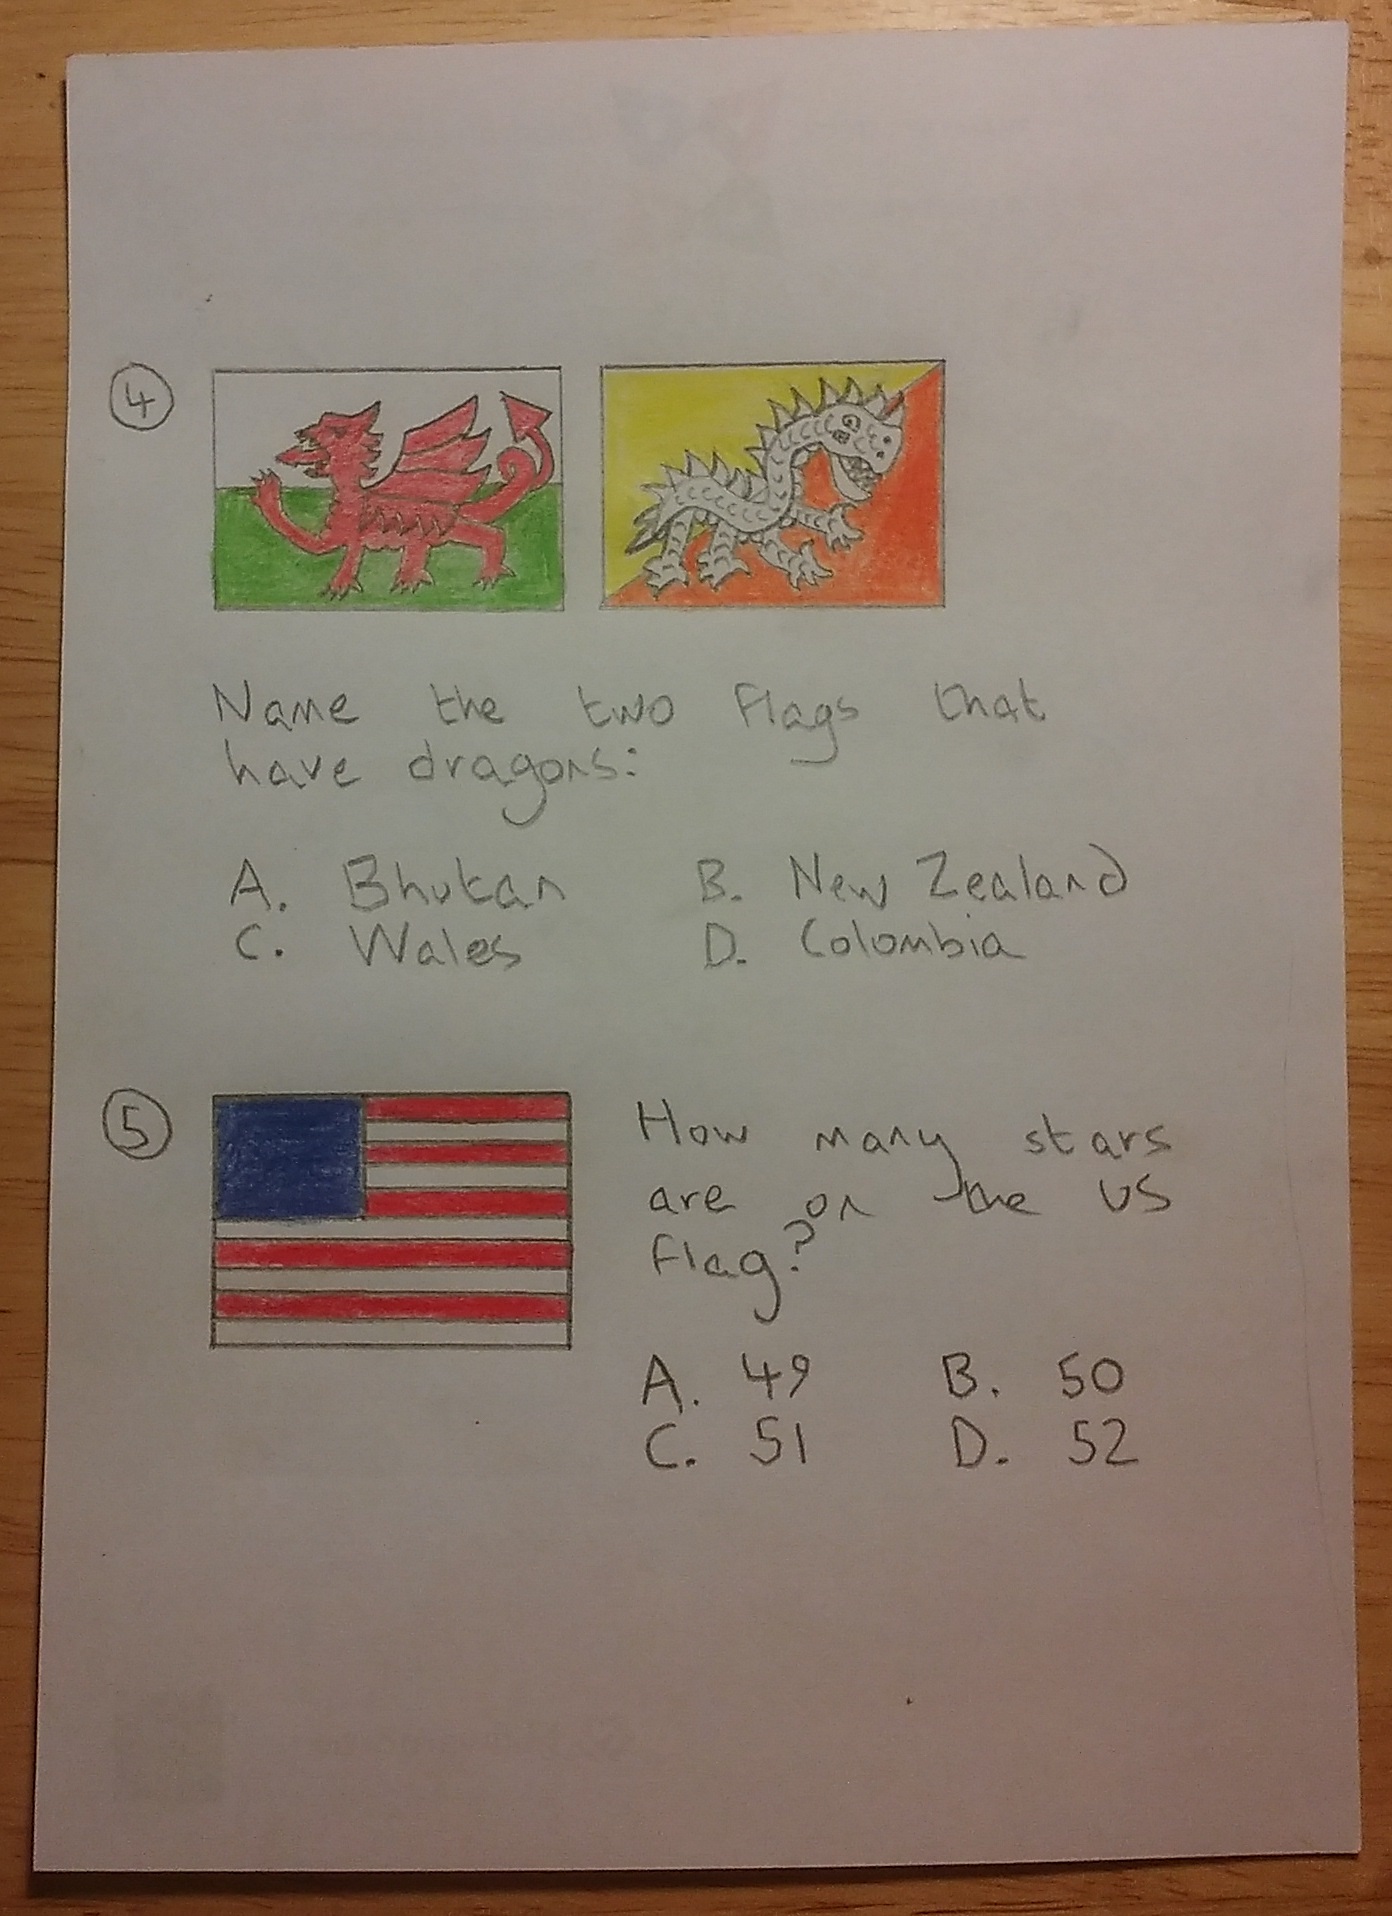 4
Name the two flags that
have dragons:
A. Bhutan B. New Zealand
C. Wales D. Colombia
5
How many stars
are on the US
flag?
A. 49 B. 50
C. 51 D. 52